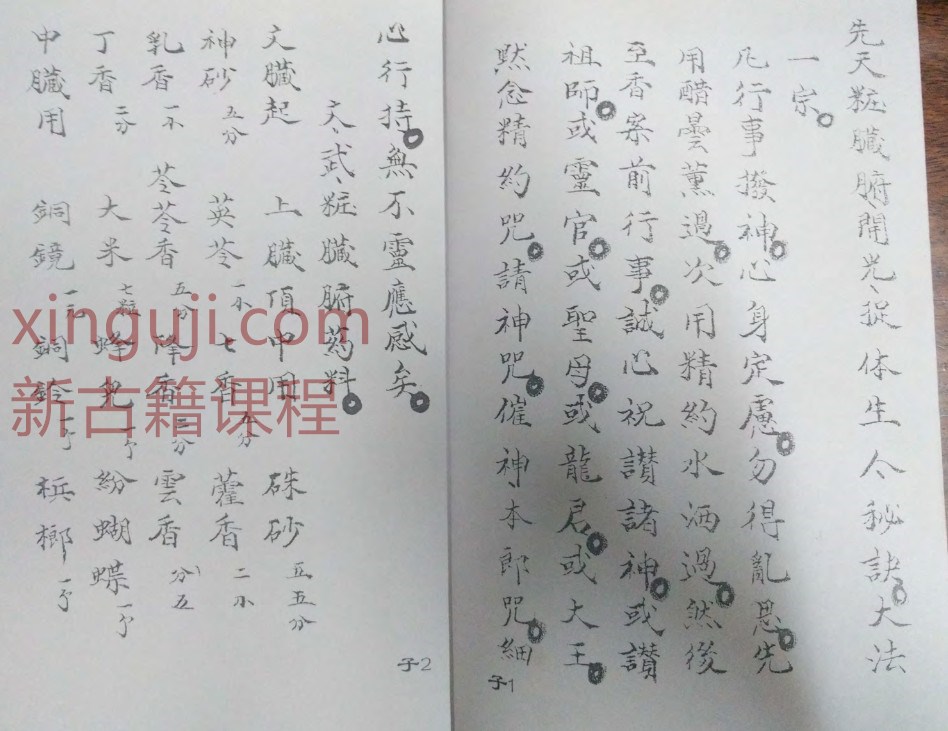 先天粧臟腑開光捉体生人秘訣大法
一宗
凡行事撥神心身定慮勿得亂思先
用醋曇薰過次用精約水洒過然後
至香案前行事誠心祝讃諸神或讃
祖師或靈官或聖母或龍君或大王
黙念精約咒請神咒催神本郎咒細
子1
心行持無不靈應感矣
文武粧臟腑葯料
文臟起 上臟頂中用 硃砂 五分
神砂 五分 英苓 七香 五分 藿香 二
乳香 一 苓苓香 五分 降香 三分 雲香 分五
丁香 二分 大米 七粒 蜂 紛蝴蝶 一
中臟用 銅鏡 一 銅鈴 一 梹榔 一
子2
xinguji.com
新古籍课程